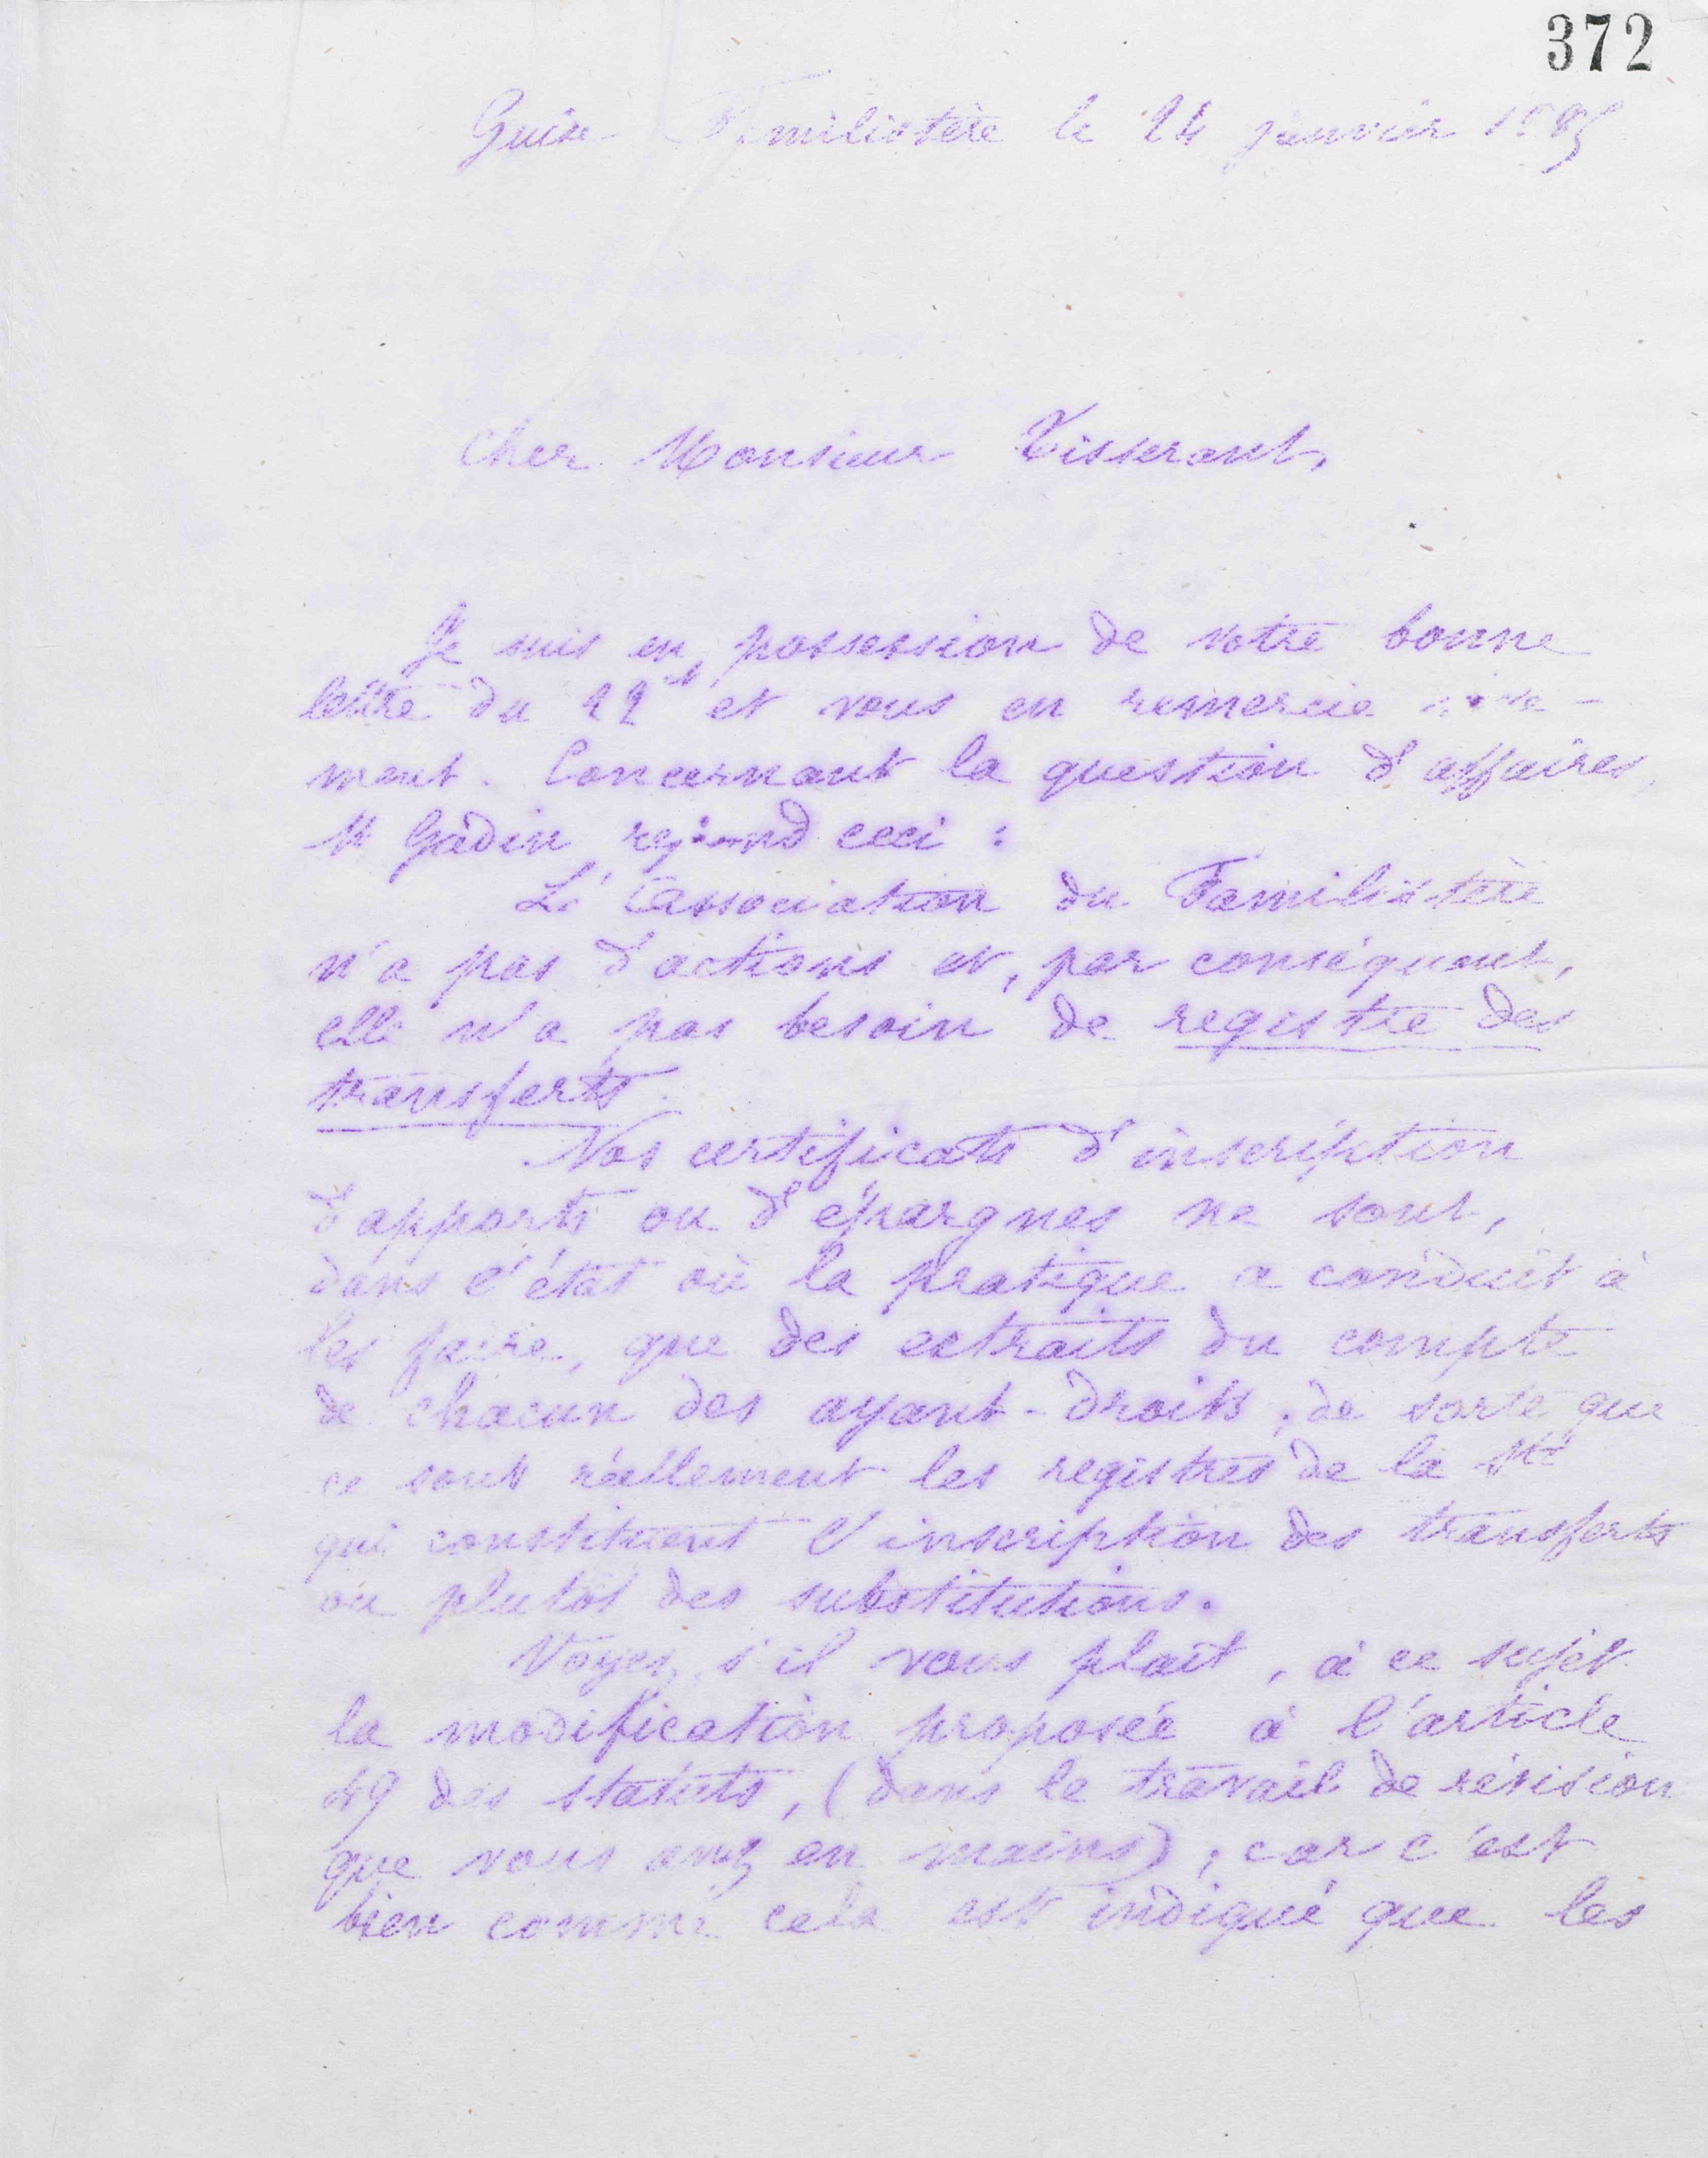 372
Guise Familistère le 24 janvier 1885
Cher Monsieur Tisserant,
Je suis en possession de votre bonne
lettre du 22 et vous en remercie vive-
ment. Concernant la question d'affaires,
M Godin répond ceci :
L'association du Familistère
n'a pas d'actions et, par conséquent,
elle n'a pas besoin de registre des
transferts.
Nos certificats d'inscription
d'apports ou d'épargnes ne sont,
dans l'état où la pratique a conduit à
les faire, que des extraits du compte
de chacun des ayant-droits ; de sorte que
ce sont réellement les registres de la Sté
qui constituent l'inscription des transferts
ou plutôt des substitutions.
Voyez, s'il vous plait, à ce sujet
la modification proposée à l'article
49 des statuts, (dans le travail de révision
que vous avez en mains) ; car c'est
bien comme cela est indiqué que les